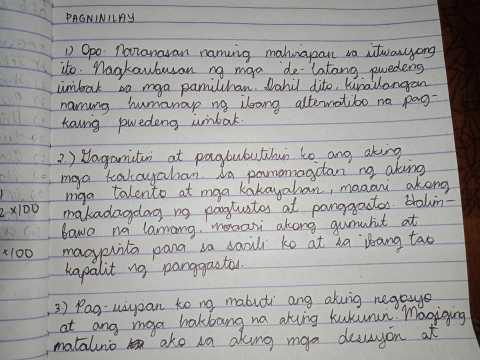 PAGNINILAY
1) Opo. Naranasan naming mahirapan sa sitwasyong
ito. Nagkaubusan ng mga de-latang pwedeng
iimbak sa mga pamilihan. Dahil dito, kinailangan
naming humanap ng ibang alternatibo na pag-
kaing pwedeng iimbak.
2.) Gagamitin at pagbubutihin ko ang aking
mga kakayahan. Sa pamamagitan ng aking
mga talento at mga kakayahan, maaari akong
makadagdag ng pagtustos at panggastos. Halim-
bawa na lamang, maaari akong gumuhit at
magpinta para sa sarili ko at sa ibang tao
kapalit ng panggastos.
3) Pag-iisipan ko ng mabuti ang aking negosyo
at ang mga hakbang na aking kukunin. Magiging
matalino ako sa aking mga desisyon at
2 x100
x100